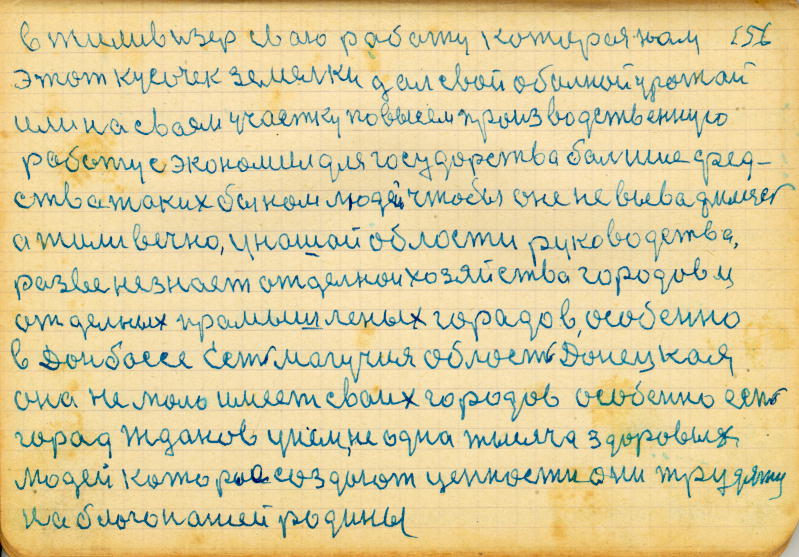 втилививзер сваю работу которая нам 156
этот кусочек земелки дал свой обалной урожай
или на сваем участку повысем производственную
работу сэкономил для государства балшие сред-
ства таких бы ном людей чтобы оне не
а жили вечно, у нашай области руководства,
разве незнает отделнои хозяйства городов и
отделных прамышленых гарадов, особенно
в Донбассе есть магучия область Донецкая
она не мало имеет сваих городов особенно есть
горад Жданов у нем не одна тысяча здоровых
людей которое создают ценности они трудятц
на благо нашей родины